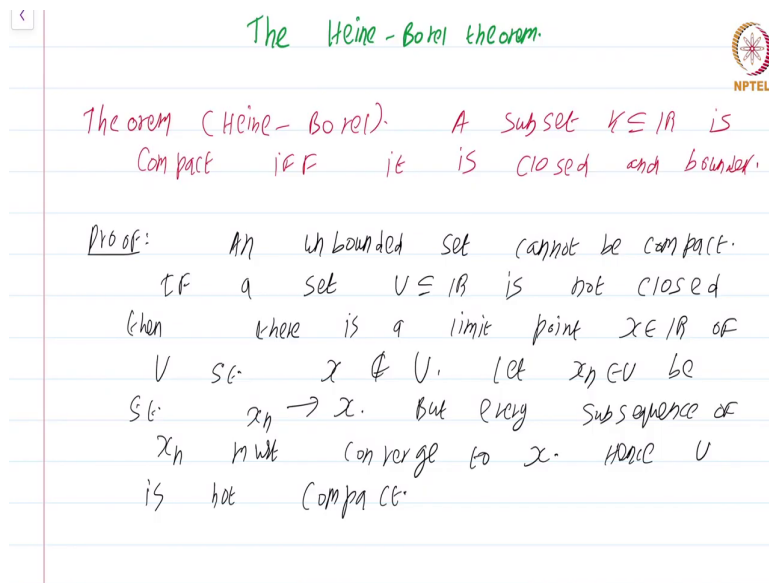 The Heine-Borel theorem.
NPTEL
Theorem (Heine-Borel). A subset K ⊆ IR is
Compact iFF it is closed and bounded.
Proof: An unbounded set cannot be compact.
IF a set U ⊆ IR is not closed
then there is a limit point x ∈ IR OF
U St. x ∉ U. let xn ∈ U be
St. xn → x. But every subsequence of
xn must converge to x. Hence U
is not compact.